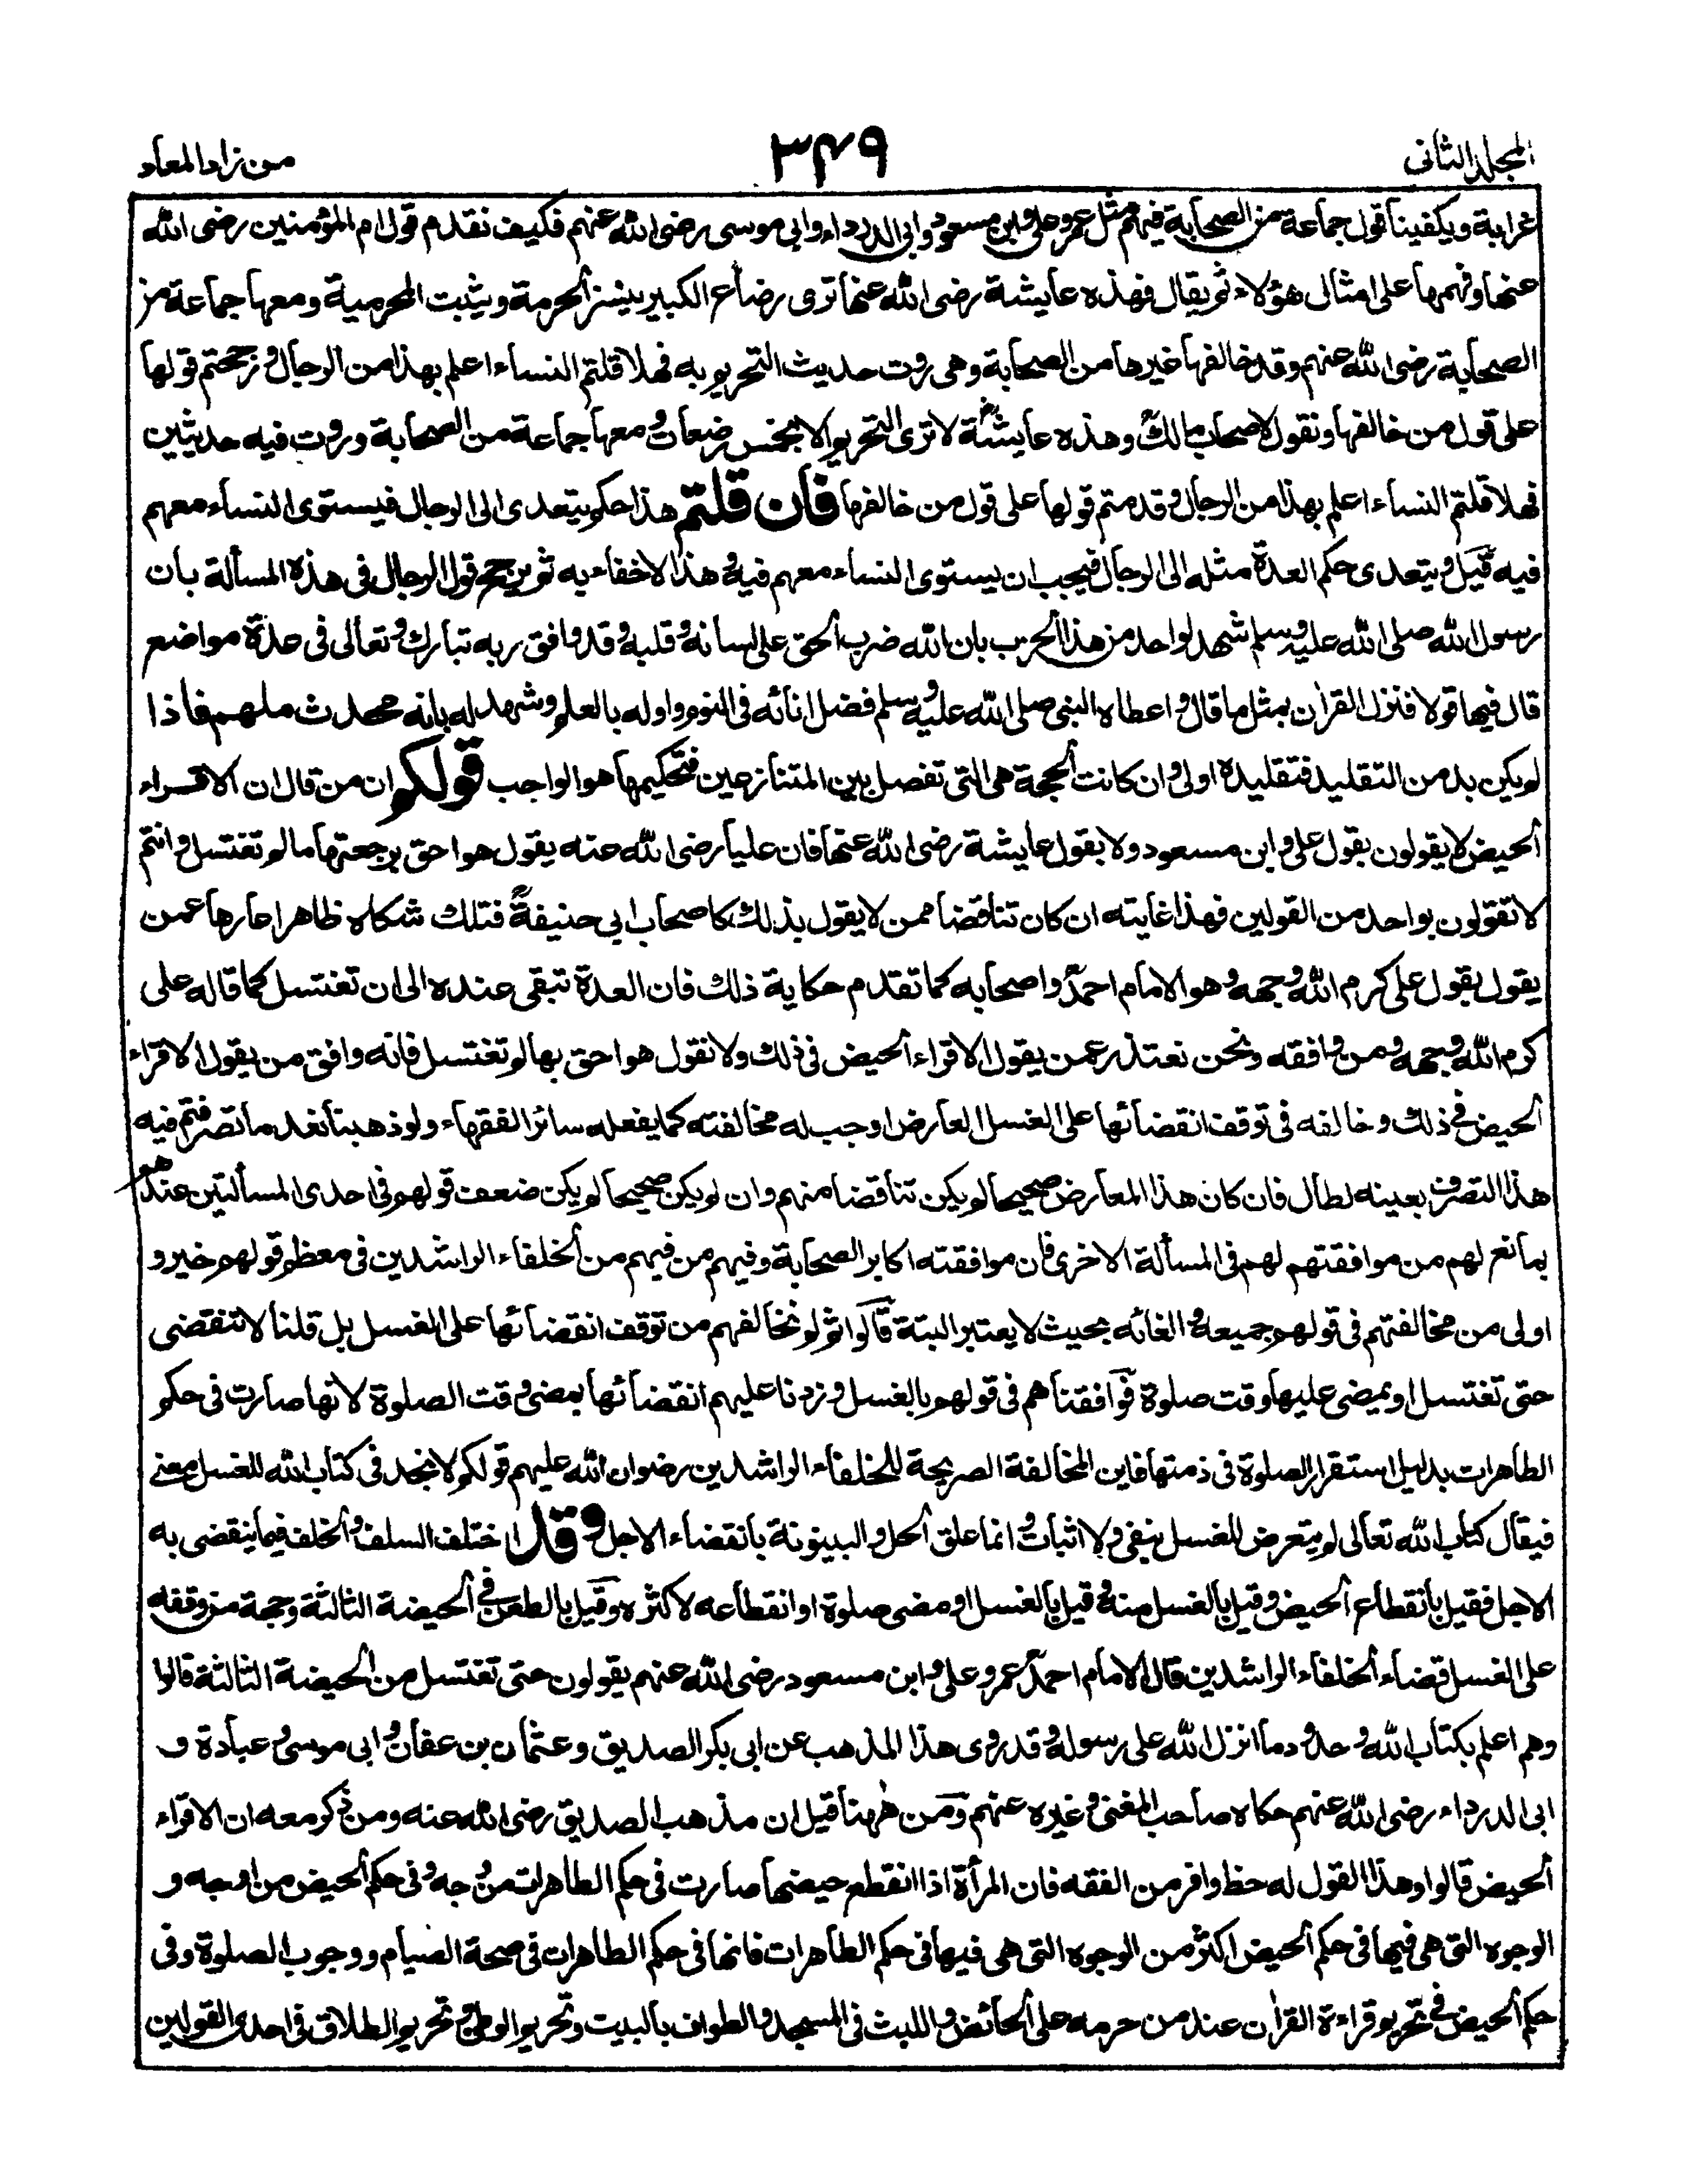 المجلد الثانی
٣٤٩
من زاد المعاد
غرابة ويكفينا قول جماعة من الصحابة فيهم مثل عمر وعلي وابن مسعود وابي الدرداء وابي موسى رضی الله عنهم فكيف نقدم قول ام المؤمنين رضی الله
عنها وفهمها على امثال هؤلاء ثم يقال فهذه عايشة رضی الله عنها ترى رضاع الكبير ينشر الحرمة ويثبت المحرمية ومعها جماعة من
الصحابة رضی الله عنهم وقد خالفها غيرها من الصحابة وهی روت حديث التحريم به فهلا قلتم النساء اعلم بهذا من الرجال ورجحتم قولها
على قول من خالفها ونقول لاصحاب مالك وهذه عايشة لا ترى التحريم الا بخمس رضعات ومعها جماعة من الصحابة وروت فيه حديثين
فهلا قلتم النساء اعلم بهذا من الرجال وقدمتم قولها على قول من خالفها فان قلتم هذا حكم يتعدى الى الرجال فيستوی النساء معهم
فيه قيل ويتعدى حكم العدة مثله الى الرجال فيجب ان يستوی النساء معهم فيه وهذا لا خفاء به ثم يرجح قول الرجال فی هذه المسألة بان
رسول الله صلى الله عليه وسلم شهد لواحد من هذا الحزب بان الله ضرب الحق على لسانه وقلبه وقد وافق ربه تبارك وتعالى فی عدة مواضع
قال فيها قولا فنزل القران بمثل ما قال واعطاه النبی صلى الله عليه وسلم فضل انائه فی النوم واوله بالعلم وشهد له بانه محدث ملهم فاذا
لم يكن بد من التقليد فتقليده اولى وان كانت الحجة هی التی تفصل بين المتنازعين فتحكيمها هو الواجب قولكم ان من قال ان الاقراء
الحيض لا يقولون بقول علی وابن مسعود ولا بقول عايشة رضی الله عنها فان عليا رضی الله عنه يقول هو احق برجعتها ما لم تغتسل وانتم
لا تقولون بواحد من القولين فهذا غايته ان كان تناقضا ممن لا يقول بذلك كاصحاب ابی حنيفة فتلك شكاة ظاهر عارها عمن
يقول بقول علی كرم الله وجهه وهو الامام احمد واصحابه كما تقدم حكاية ذلك فان العدة تبقى عنده الى ان تغتسل كما قاله على
كرم الله وجهه ومن وافقه ونحن نعتذر عمن يقول الاقراء الحيض فی ذلك ولا نقول هو احق بها لم تغتسل فانه وافق من يقول الاقراء
الحيض فی ذلك وخالفه فی توقف انقضائها على الغسل العارض اوجب له مخالفته كما يفعله سائر الفقهاء ولو ذهبنا نعد ما تصرفتم فيه
هذا التصرف بعينه لطال فان كان هذا المعارض صحيحا لم يكن تناقضا منهم وان لم يكن صحيحا لم يكن ضعف قولهم فی احدى المسألتين عندهم
بمانع لهم من موافقتهم لهم فی المسألة الاخرى فان موافقته اكابر الصحابة وفيهم من فيهم من الخلفاء الراشدين فی معظم قولهم خير و
اولى من مخالفتهم فی قولهم جميعه والغائه بحيث لا يعتبر البتة قالوا ثم لو نخالفهم من توقف انقضائها على الغسل بل قلنا لا تنقضی
حتى تغتسل او يمضی عليها وقت صلوة فوافقناهم فی قولهم بالغسل وزدنا عليهم انقضائها بمضی وقت الصلوة لانها صارت فی حكم
الطاهرات بدليل استقرار الصلوة فی ذمتها فاين المخالفة الصريحة للخلفاء الراشدين رضوان الله عليهم قولكم لا نجد فی كتاب الله للغسل معنى
فيقال كتاب الله تعالى لم يتعرض للغسل بنفی ولا اثبات وانما علق الحل والبينونة بانقضاء الاجل وقد اختلف السلف والخلف فيما ينقضی به
الاجل فقيل بانقطاع الحيض وقيل بالغسل منه وقيل بالغسل او مضی صلوة او انقطاعه لاكثره وقيل بالطعن فی الحيضة الثالثة وحجة من وقفه
على الغسل قضاء الخلفاء الراشدين قال الامام احمد عمر وعلی وابن مسعود رضی الله عنهم يقولون حتى تغتسل من الحيضة الثالثة قالوا
وهم اعلم بكتاب الله وحدود ما انزل الله على رسوله وقد روی هذا المذهب عن ابی بكر الصديق وعثمان بن عفان وابی موسى وعبادة و
ابی الدرداء رضی الله عنهم حكاه صاحب المغنی وغيره عنهم ومن ههنا قيل ان مذهب الصديق رضی الله عنه ومن ذكر معه ان الاقراء
الحيض قالوا وهذا القول له حظ وافر من الفقه فان المرأة اذا انقطع حيضها صارت فی حكم الطاهرات من وجه وفی حكم الحيض من اوجه و
الوجوه التی هی فيها فی حكم الحيض اكثر من الوجوه التی هی فيها فی حكم الطاهرات فانها فی حكم الطاهرات فی صحة الصيام ووجوب الصلوة وفی
حكم الحيض فی تحريم قراءة القران عند من حرمه على الحائض واللبث فی المسجد والطواف بالبيت وتحريم الوطی وتحريم الطلاق فی احدى القولين